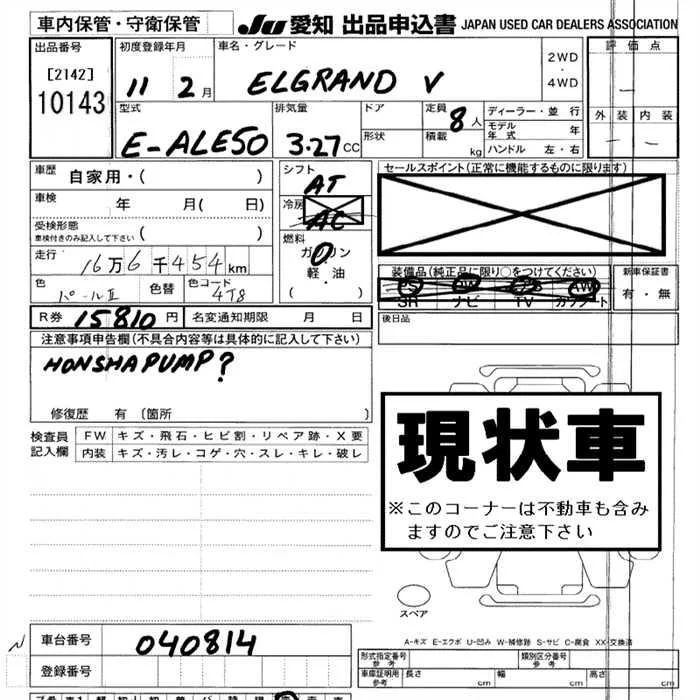 車内保管・守衛保管
JU 愛知 出品申込書 JAPAN USED CAR DEALERS ASSOCIATION
出品番号
[2142]
10143
初度登録年月
11 2月
車名・グレード
ELGRAND V
2WD
・
4WD
評価点
外装 内装
型式
E-ALE50
排気量
3.27cc
ドア
形状
定員
8人
積載
kg
ディーラー・並行
モデル年式 年
ハンドル 左・右
車歴 自家用・( )
車検 年 月( 日)
受検形態
車検付きのみ記入して下さい ( )
走行 16万6千454km
色 パールII
色替
色コード 4T8
シフト
AT
冷房
AC
燃料
ガソリン
軽・油
( )
セールスポイント(正常に機能するものに限ります)
装備品(純正品に限り○をつけてください)
PS AW PS AW
SR ナビ TV カワシート
新車保証書
有・無
R券 15810円 名変通知期限 月 日
後日品
注意事項申告欄(不具合内容等は具体的に記入して下さい)
HONSHAPUMP?
修復歴 有 〔箇所 〕
現状車
※このコーナーは不動車も含み
ますのでご注意下さい
検査員
記入欄
FW キズ・飛石・ヒビ割・リペア跡・X要
内装 キズ・汚レ・コゲ・穴・スレ・キレ・破レ
スペア
A-キズ E-エクボ U-凹み W-補修跡 S-サビ C-腐食 XX-交換済
N
車台番号 040814
登録番号
形式指定番号
参考
類別区分番号
参考
車庫証明用
参考
長さ cm 幅 cm 高さ cm